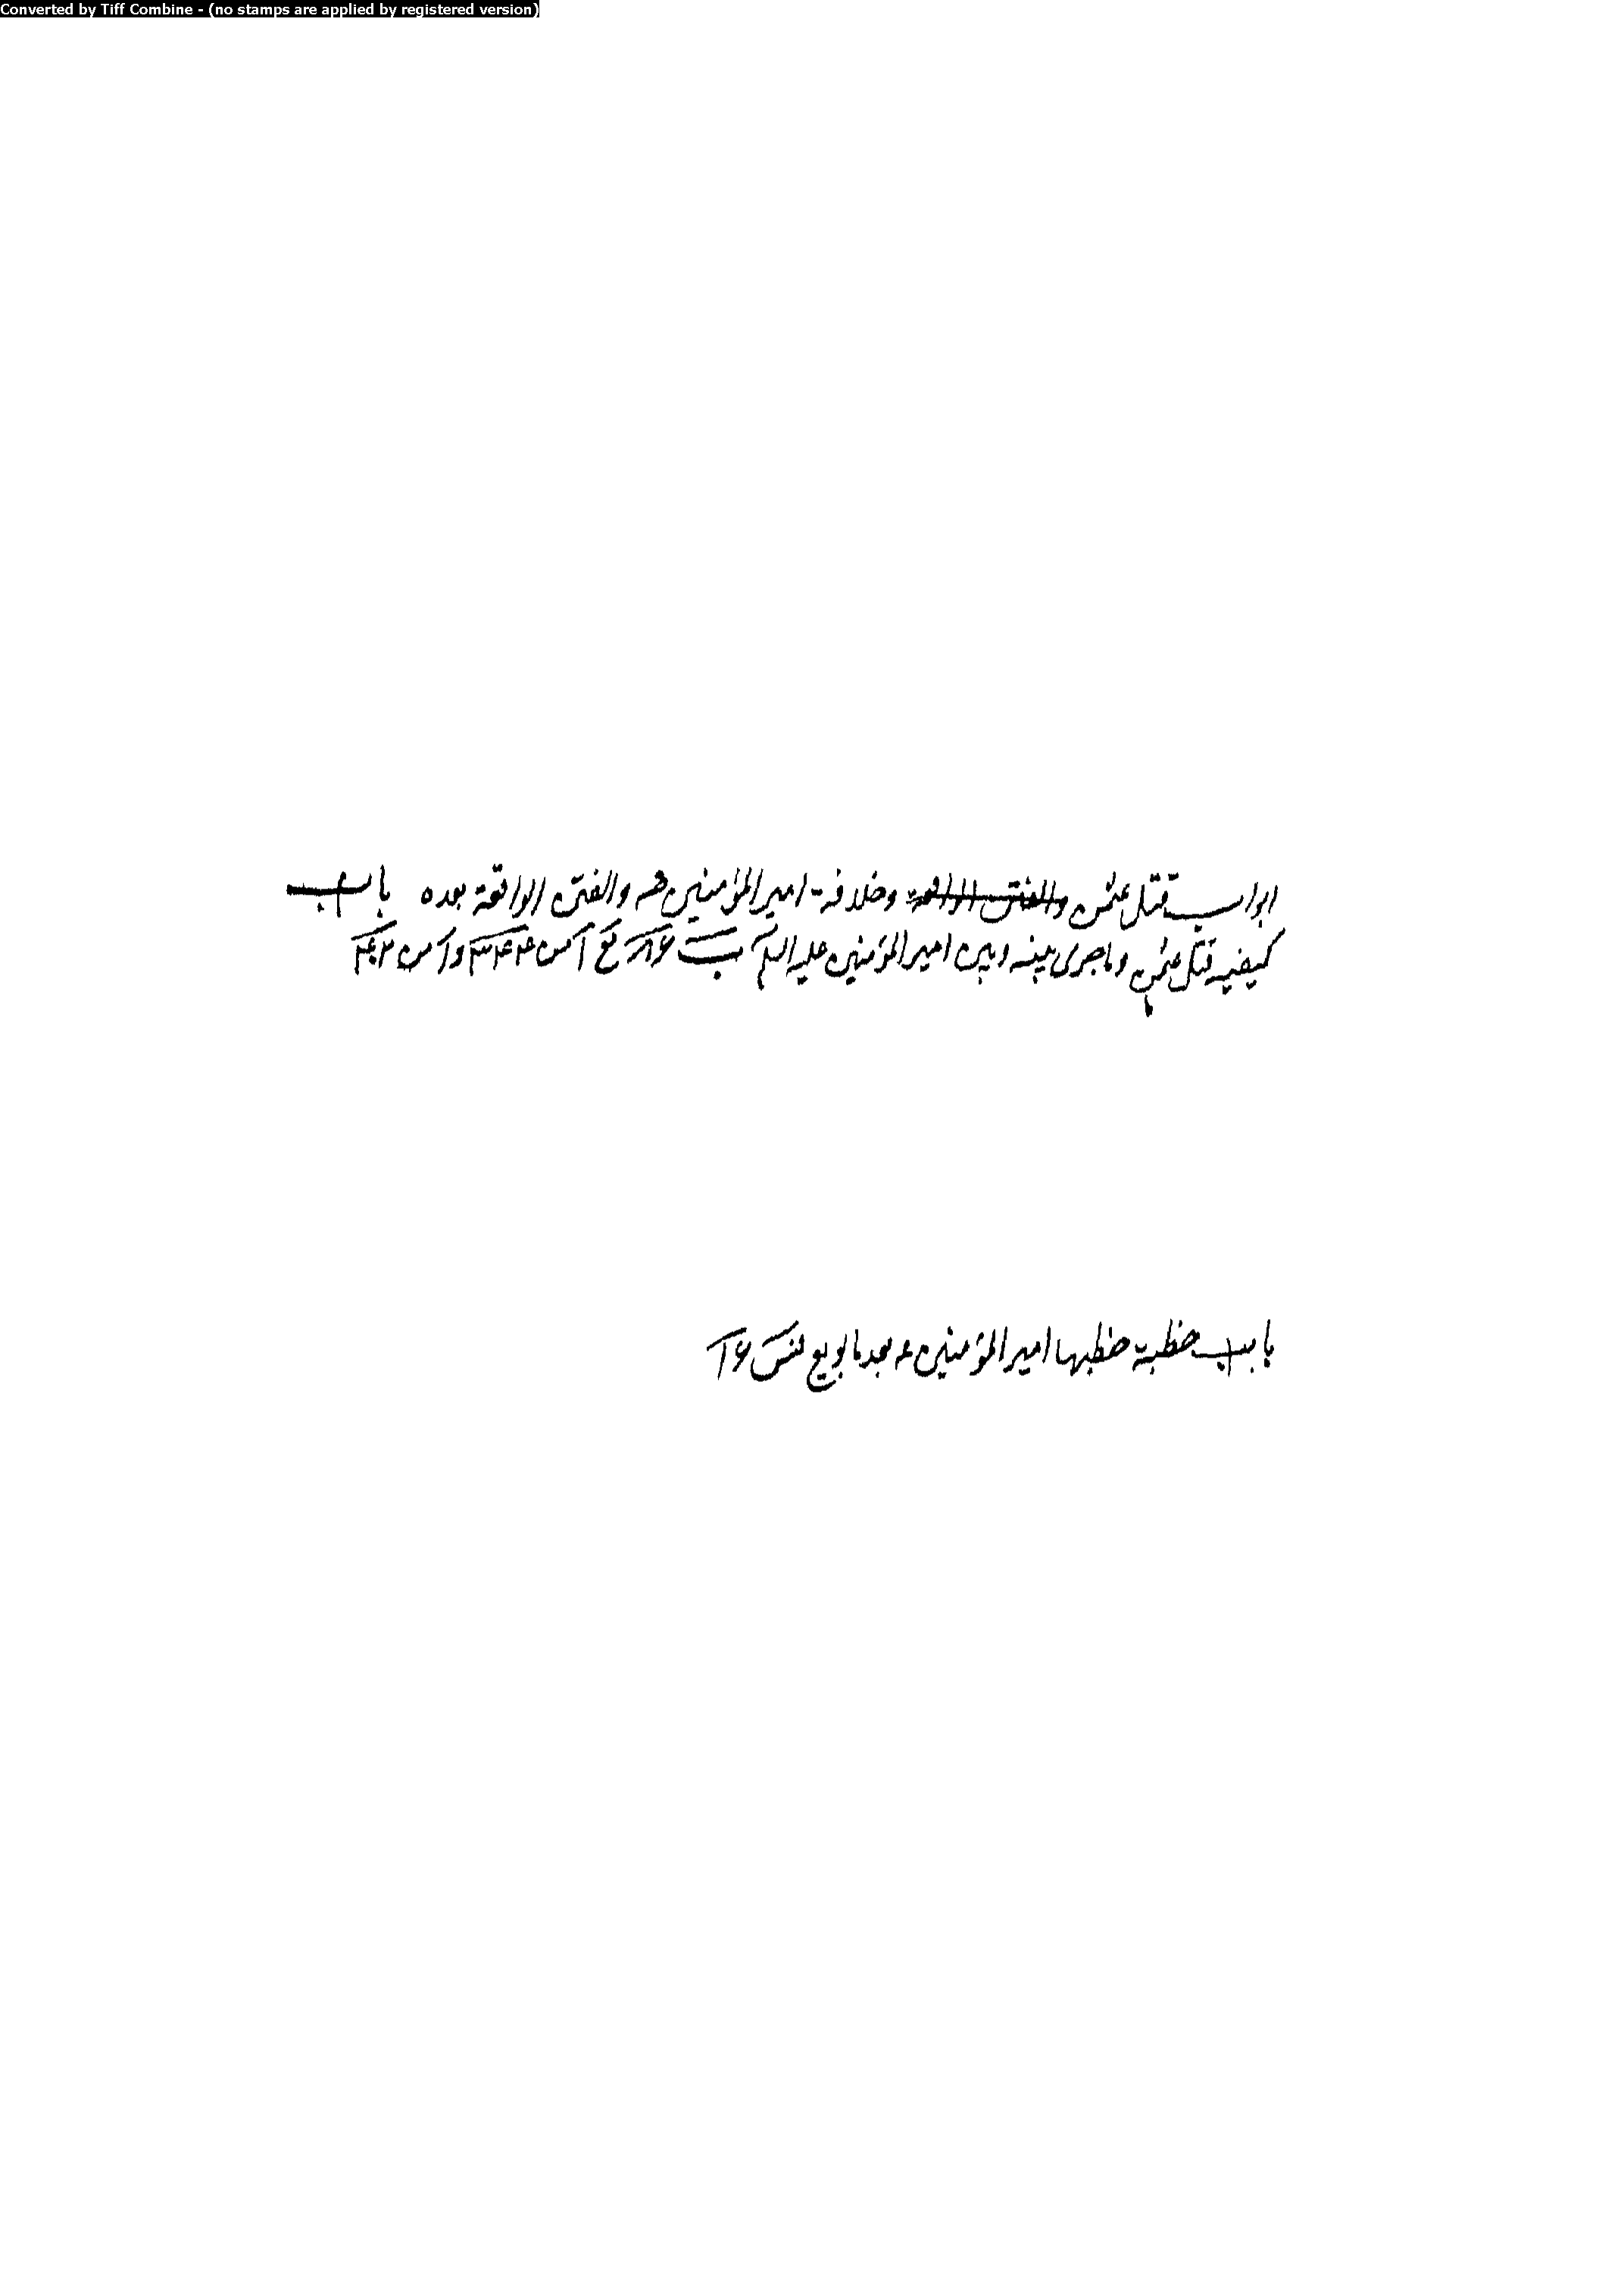 Converted by Tiff Combine - (no stamps are applied by registered version)
ابواب قتل عثمن والفتن الواقعة وخلافة امير المؤمنين والفتن الواقعة بعده باب
كيفية قتل عثمن وما جرى بينه وبين امير المؤمنين عليه السلم
باب خطبة خطبها امير المؤمنين ع بعد ما بويع